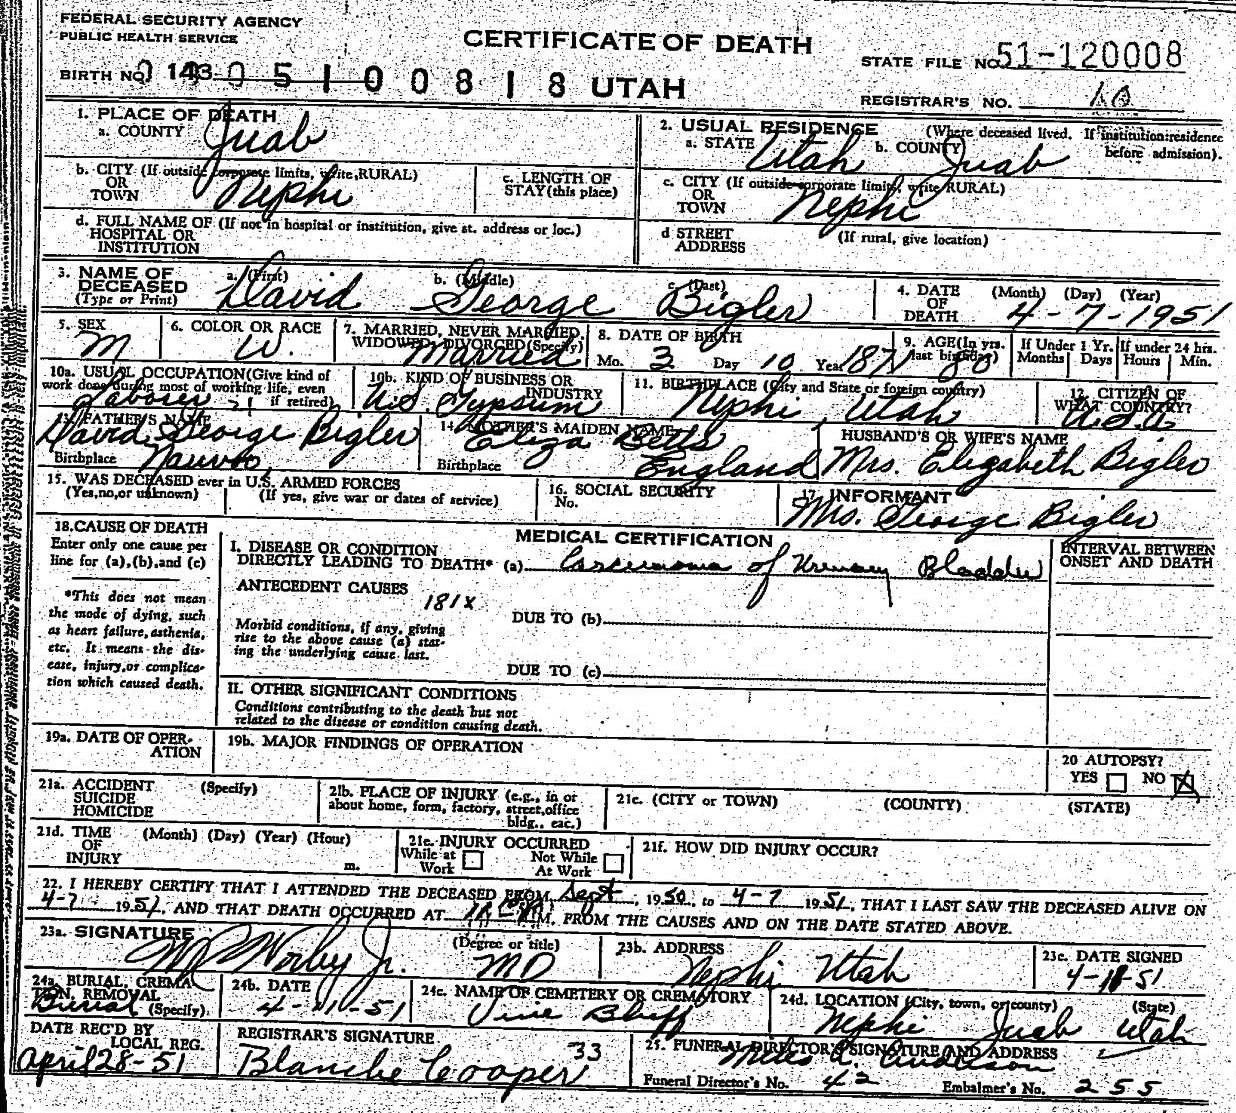 FEDERAL SECURITY AGENCY
PUBLIC HEALTH SERVICE
CERTIFICATE OF DEATH
STATE FILE NO. 51-120008
BIRTH NO. 143 0 5 1 0 0 8 1 8 UTAH
REGISTRAR'S NO. 10
1. PLACE OF DEATH
a. COUNTY Juab
2. USUAL RESIDENCE (Where deceased lived. If institution:residence before admission).
a. STATE Utah b. COUNTY Juab
b. CITY (If outside corporate limits, write RURAL) OR TOWN Nephi
c. LENGTH OF STAY (this place)
c. CITY (If outside corporate limits, write RURAL) OR TOWN Nephi
d. FULL NAME OF (If not in hospital or institution, give st. address or loc.) HOSPITAL OR INSTITUTION
d STREET ADDRESS (If rural, give location)
3. NAME OF DECEASED (Type or Print) a. (First) David b. (Middle) George c. (Last) Bigler
4. DATE OF DEATH (Month) (Day) (Year) 4-7-1951
5. SEX M
6. COLOR OR RACE W.
7. MARRIED, NEVER MARRIED, WIDOWED, DIVORCED (Specify) Married
8. DATE OF BIRTH Mo. 3 Day 10 Year 1871
9. AGE (In yrs. last birthday) 80
If Under 1 Yr. Months Days
If under 24 hrs. Hours Min.
10a. USUAL OCCUPATION (Give kind of work done during most of working life, even if retired) Laborer
10b. KIND OF BUSINESS OR INDUSTRY U.S. Gypsum
11. BIRTHPLACE (City and State or foreign country) Nephi, Utah
12. CITIZEN OF WHAT COUNTRY? U.S.A
13. FATHER'S NAME David George Bigler
Birthplace Nauvoo
14. MOTHER'S MAIDEN NAME Eliza Betts
Birthplace England
HUSBAND'S OR WIFE'S NAME
Mrs. Elizabeth Bigler
15. WAS DECEASED ever in U.S. ARMED FORCES
(Yes, no, or unknown) (If yes, give war or dates of service)
16. SOCIAL SECURITY No.
17. INFORMANT
Mrs. George Bigler
18. CAUSE OF DEATH
Enter only one cause per line for (a), (b), and (c)
*This does not mean the mode of dying, such as heart failure, asthenia, etc. It means the disease, injury, or complication which caused death.
MEDICAL CERTIFICATION
I. DISEASE OR CONDITION DIRECTLY LEADING TO DEATH* (a) Carcinoma of Urinary Bladder
INTERVAL BETWEEN ONSET AND DEATH
ANTECEDENT CAUSES
181X
Morbid conditions, if any, giving rise to the above cause (a) stating the underlying cause last.
DUE TO (b)
DUE TO (c)
II. OTHER SIGNIFICANT CONDITIONS
Conditions contributing to the death but not related to the disease or condition causing death.
19a. DATE OF OPERATION
19b. MAJOR FINDINGS OF OPERATION
20 AUTOPSY?
YES NO X
21a. ACCIDENT SUICIDE HOMICIDE (Specify)
21b. PLACE OF INJURY (e.g., in or about home, form, factory, street, office bldg., eac.)
21c. (CITY or TOWN) (COUNTY) (STATE)
21d. TIME OF INJURY (Month) (Day) (Year) (Hour) m.
21e. INJURY OCCURRED
While at Work Not While At Work
21f. HOW DID INJURY OCCUR?
22. I HEREBY CERTIFY THAT I ATTENDED THE DECEASED FROM Sept, 1950, to 4-7 1951, THAT I LAST SAW THE DECEASED ALIVE ON
4-7 1951, AND THAT DEATH OCCURRED AT M. FROM THE CAUSES AND ON THE DATE STATED ABOVE.
23a. SIGNATURE Worley Jr. (Degree or title) MD
23b. ADDRESS Nephi Utah
23c. DATE SIGNED
24a. BURIAL, CREMATION, REMOVAL (Specify) Burial
24b. DATE 4-11-51
24c. NAME OF CEMETERY OR CREMATORY Vine Bluff
24d. LOCATION (City, town, or county) (State)
Nephi Juab Utah
DATE REC'D BY LOCAL REG.
April 28-51
REGISTRAR'S SIGNATURE
Blanche Cooper 33
25. FUNERAL DIRECTOR'S SIGNATURE AND ADDRESS
Anderson
Funeral Director's No. 42 Embalmer's No. 255